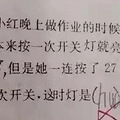 小红晚上做作业的时候
本来按一次开关灯就亮
，但是她一连按了27
次开关，这时灯是(